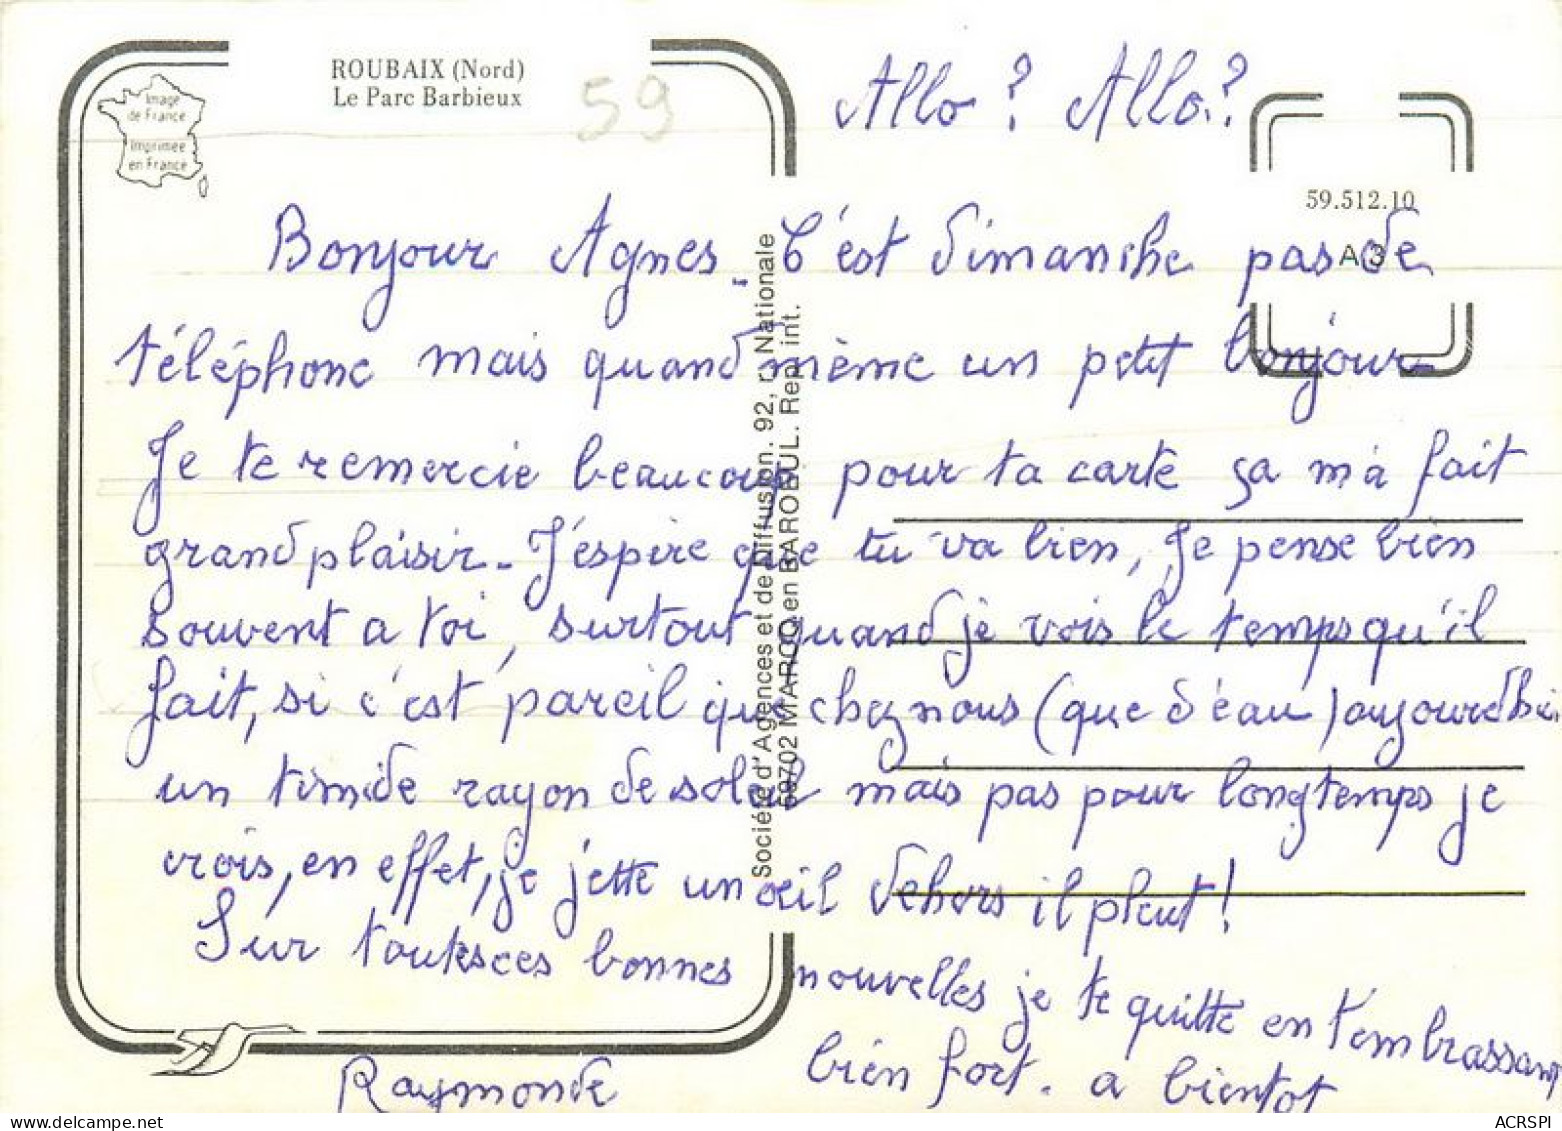 ROUBAIX (Nord)
Le Parc Barbieux
59
Image
de France
Imprimée
en France
Allo ? Allo.?
59.512.10
A 3
Bonjour Agnes. C'est dimanche pas de
téléphone mais quand même un petit bonjour
Je te remercie beaucoup pour ta carte ça m'a fait
grand plaisir. J'éspère que tu va bien, Je pense bien
souvent a toi, surtout quand je vois le temps qu'il
fait, si c'est pareil que chez nous (que d'eau) aujourd'hui
un timide rayon de soleil mais pas pour longtemps je
crois, en effet, je jette un oeil dehors il pleut!
Sur toutes ces bonnes nouvelles je te quitte en t'embrassant
bien fort. a bientot
Raymonde
Société d'Agences et de Diffusion. 92, r. Nationale
59702 MARCQ en BAROEUL. Rep. int.
ACRSPI